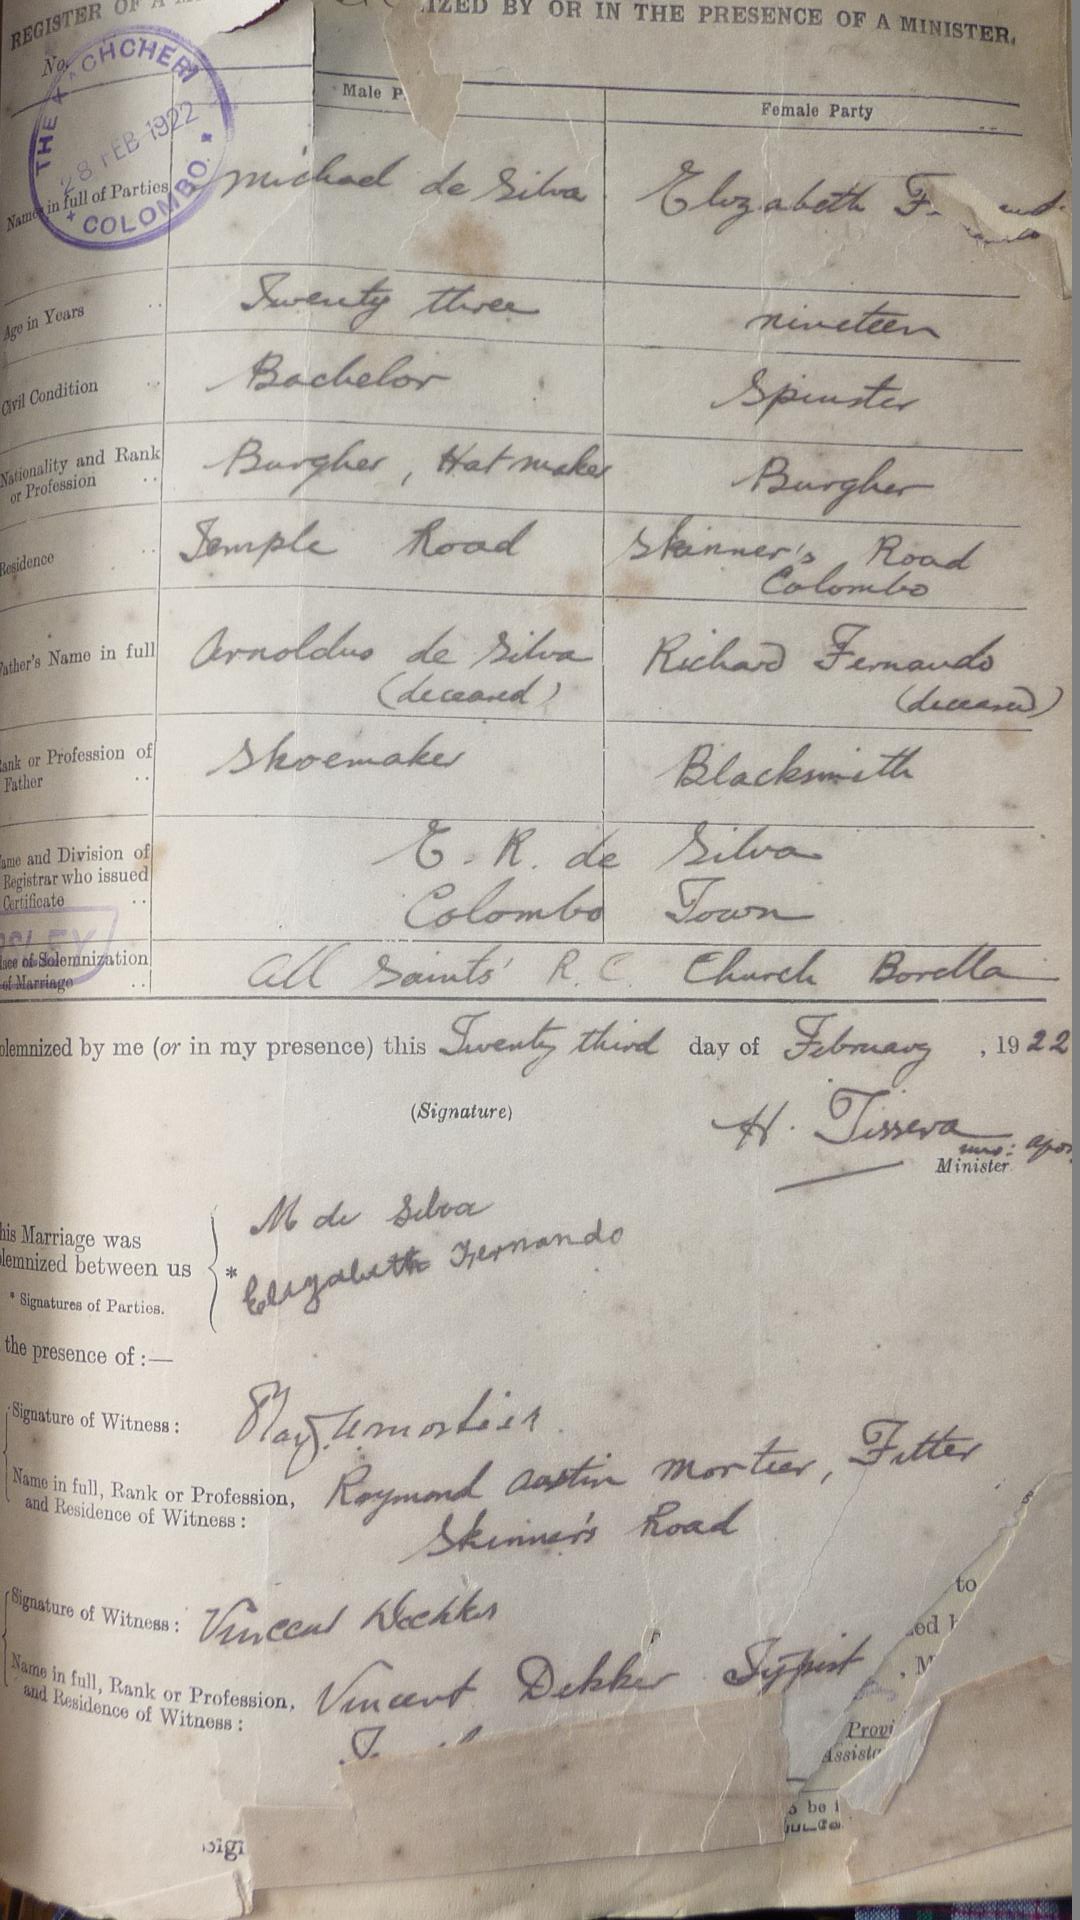 REGISTER OF A
IZED BY OR IN THE PRESENCE OF A MINISTER.
No.
THE KACHCHERI
28 FEB 1922
COLOMBO
Male P
Female Party
Names in full of Parties
Michael de Silva
Elizabeth F
Age in Years
Twenty three
nineteen
Civil Condition
Bachelor
Spinster
Nationality and Rank
or Profession
Burgher, Hat maker
Burgher
Residence
Temple Road
Skinner's Road
Colombo
Father's Name in full
Arnoldus de Silva
(deceased)
Richard Fernando
(deceased)
ank or Profession of
Father
Shoemaker
Blacksmith
ame and Division of
Registrar who issued
Certificate
E. R. de Silva
Colombo Town
SLEY
lace of Solemnization
of Marriage
All Saints' R. C. Church Borella
olemnized by me (or in my presence) this Twenty third day of February, 1922
(Signature)
H. Tissera
Minister
his Marriage was
lemnized between us
* Signatures of Parties.
M de Silva
* Elizabeth Fernando
the presence of :—
Signature of Witness :
Name in full, Rank or Profession,
and Residence of Witness :
Raymond Austin Mortier, Fitter
Skinner's Road
Signature of Witness :
Vincent Dekker
Name in full, Rank or Profession,
and Residence of Witness :
Vincent Dekker Typist
to
ed b
, M
Provi
Assista
o be i
Sign